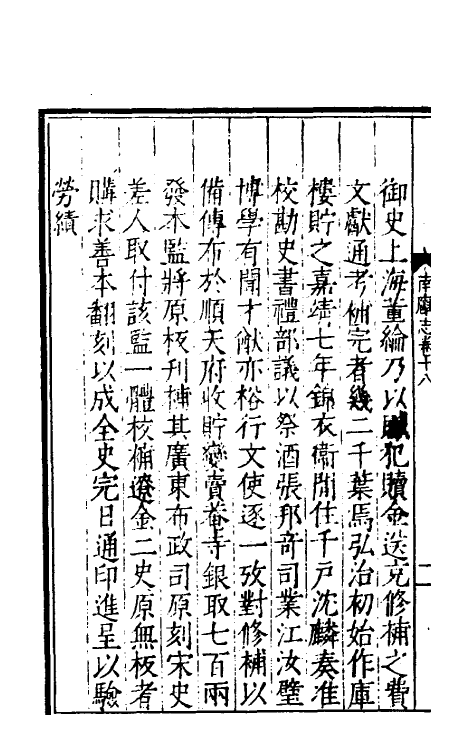 南廱志卷十八
二
御史上海董綸乃以贓犯贖金送充修補之費
文獻通考補完者幾二千葉焉弘治初始作庫
樓貯之嘉靖七年錦衣衛閒住千戶沈麟奏准
校勘史書禮部議以祭酒張邦奇司業江汝璧
博學有聞才猷亦裕行文使逐一攷對修補以
備傳布於順天府收貯變賣菴寺銀取七百兩
發本監將原板刋補其廣東布政司原刻宋史
差人取付該監一體校補遼金二史原無板者
購求善本翻刻以成全史完日通印進呈以驗
勞績